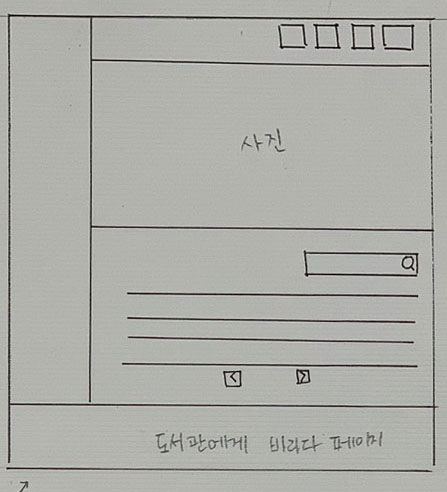 사진
도서관에게 바라다 페이지